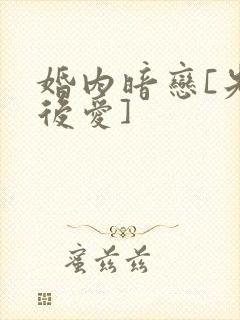 婚内暗戀[先
後愛]
蜜茲茲